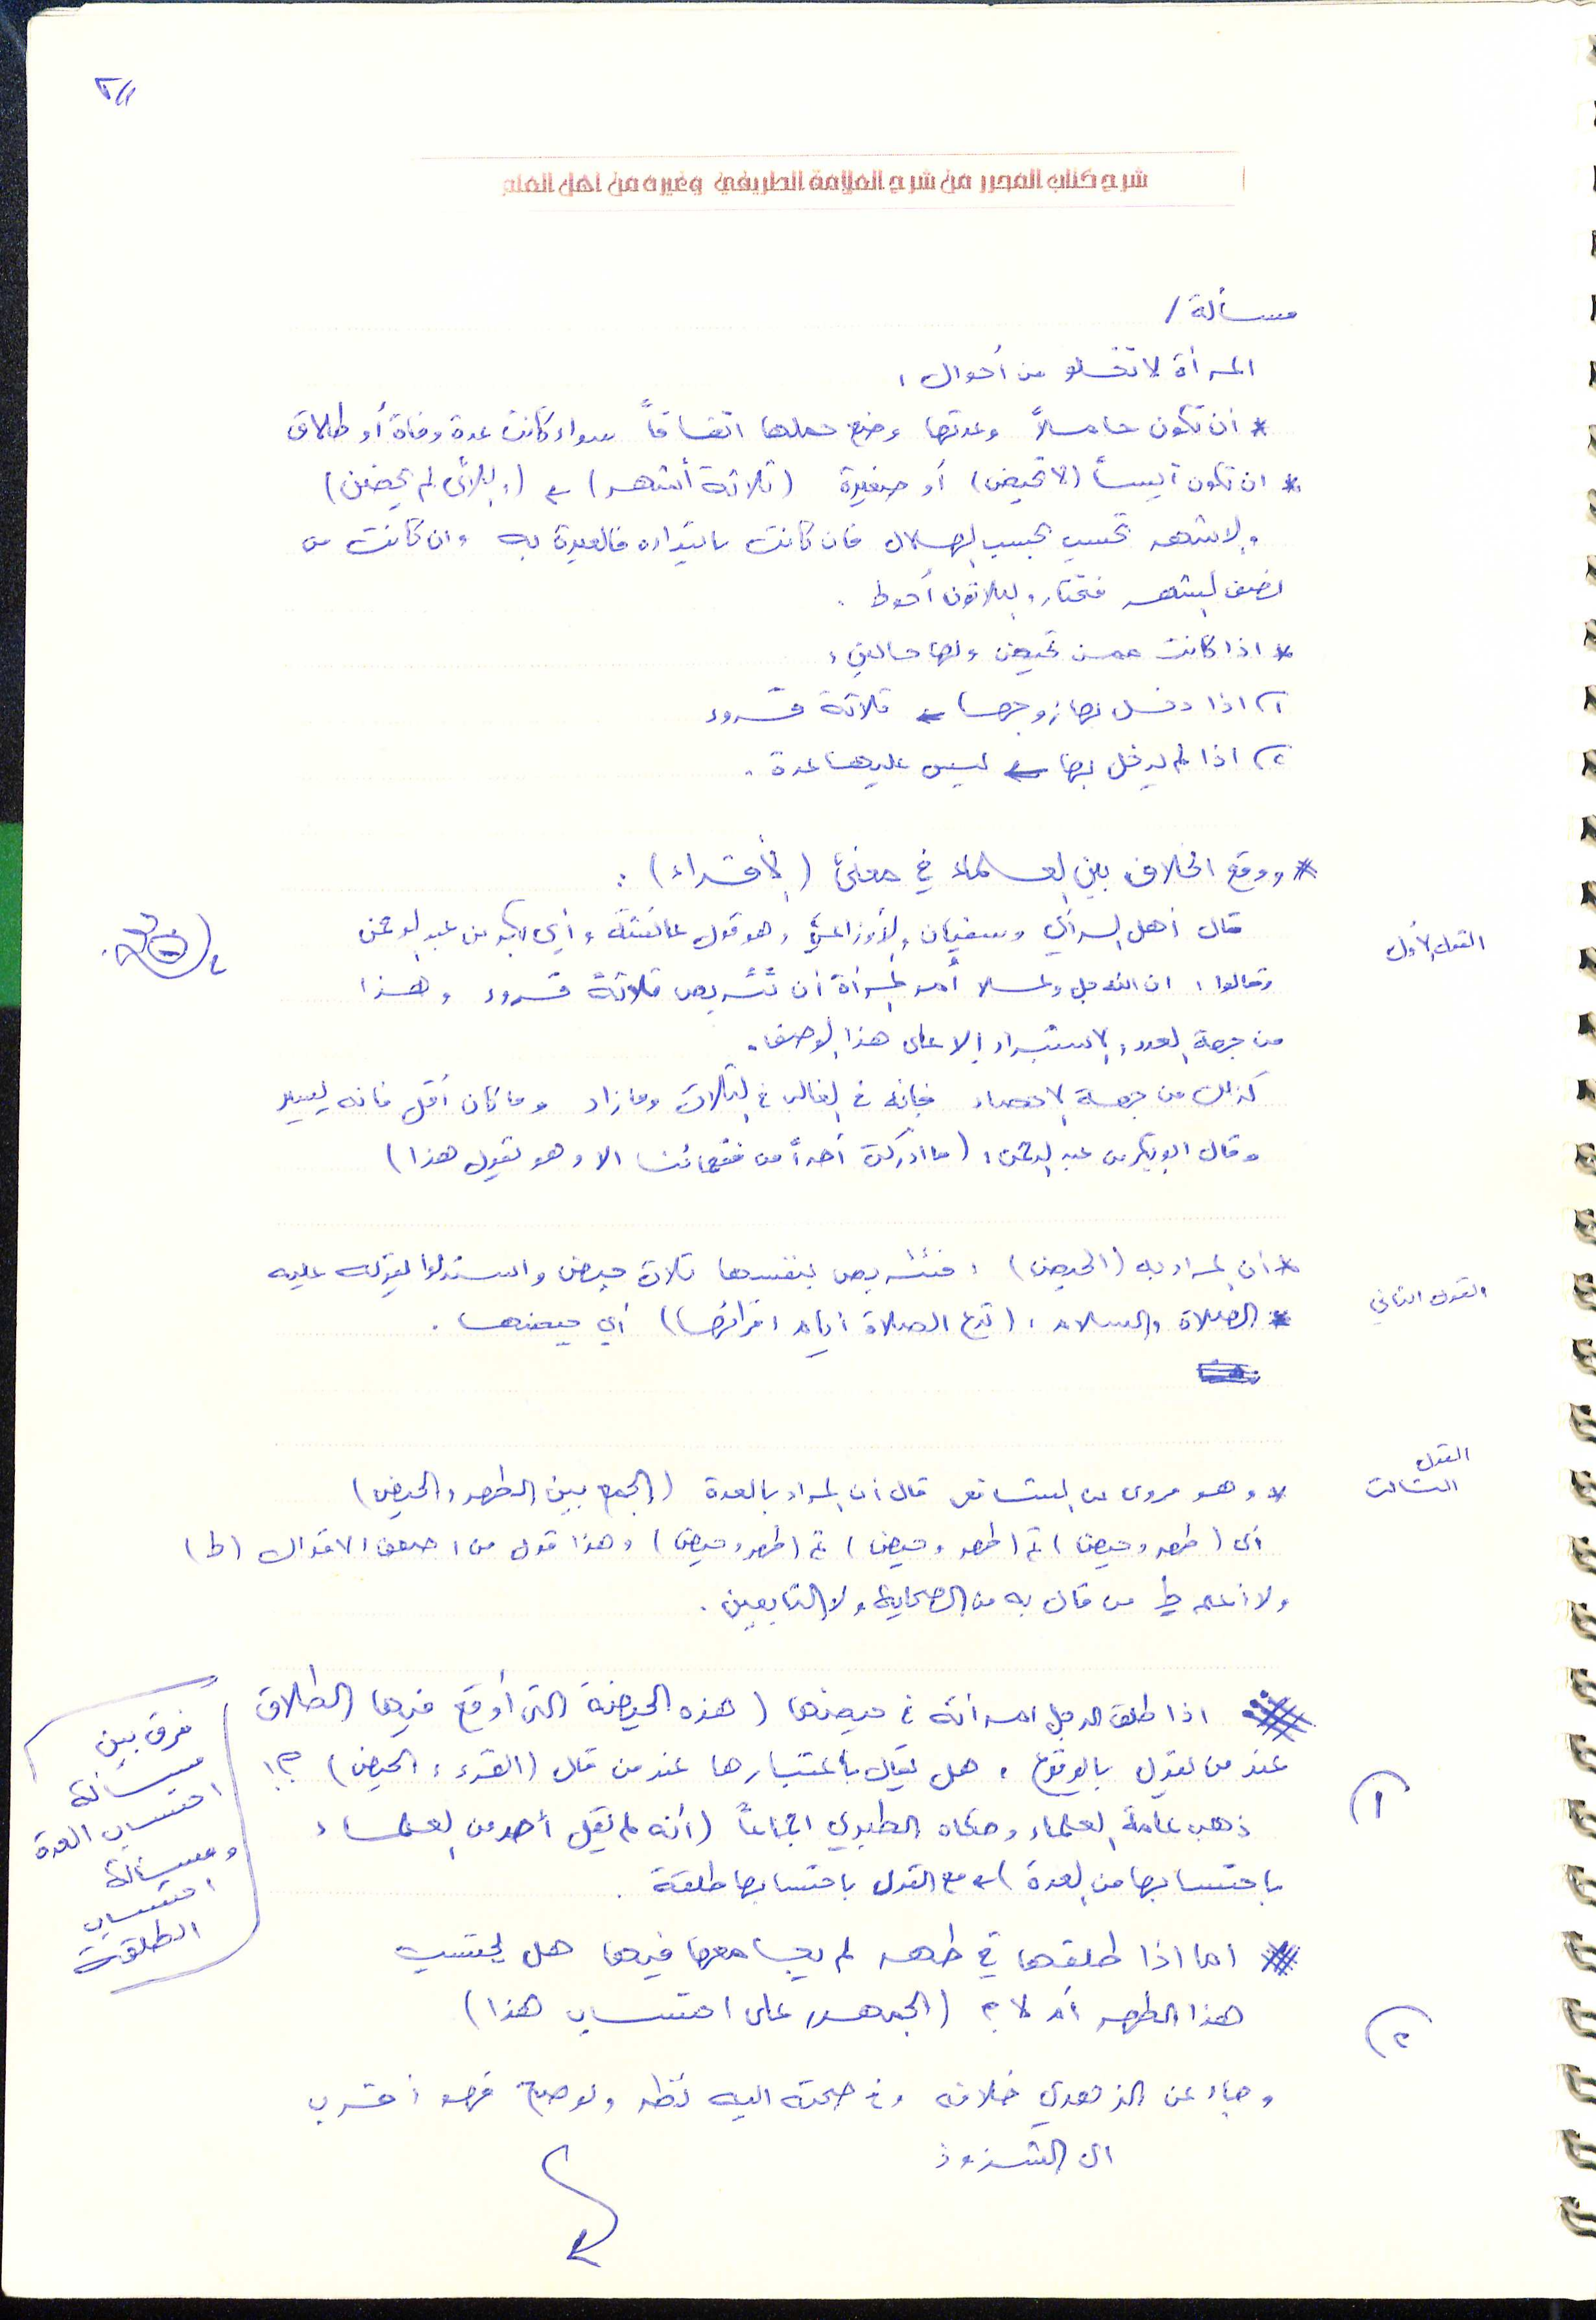 شرح كتاب المحرر من شرح العلامة الطريفي وغيره من اهل العلم
مسألة /
المرأة لا تخلو من أحوال :
* ان تكون حاملاً وعدتها وضع حملها اتفاقاً سواء كانت عدة وفاة أو طلاق
* ان تكون آيساً (لا تحيض) أو صغيرة (ثلاثة أشهر) ← (واللائي لم يحضن)
والاشهر تحسب بحسب الهلال فان كانت بابتداءه فالعبرة به وان كانت من
نصف الشهر فتختار والثلاثون أحوط .
* اذا كانت ممن تحيض ولها حالين :
١) اذا دخل بها زوجها ← ثلاثة قروء
٢) اذا لم يدخل بها ← ليس عليها عدة .
* ووقع الخلاف بين العلماء في معنى (الأقراء) :
القول الأول
قال أهل الرأي وسفيان والأوزاعي وهو قول عائشة وأبي بكر بن عبد الرحمن
وقالوا : ان الله جل وعلا أمر المرأة أن تتربص ثلاثة قروء وهذا
من جهة العدد لا استبراء إلا على هذا الوصف .
كذلك من جهة الاحصاء فإنه في الغالب في الثلاث وما زاد وما كان أقل فانه يسير
وقال ابو بكر بن عبد الرحمن : (ما ادركت أحداً من فقهائنا الا وهو يقول هذا)
القول الثاني
* أن المراد به (الحيض) : فتتربص بنفسها ثلاث حيض واستدلوا بقوله عليه
* الصلاة والسلام : (تدع الصلاة أيام اقرائها) أي حيضها .
القول الثالث
* وهو مروي عن الشافعي قال أن المراد بالعدة (الجمع بين الطهر والحيض)
أي (طهر وحيض) ثم (طهر وحيض) ثم (طهر وحيض) وهذا قول من اضعف الاقوال (ط)
ولا أعلم ط من قال به من الصحابة ولا التابعين .
اذا طلق الرجل امرأته في حيضها (هذه الحيضة التي أوقع فيها الطلاق
عند من يقول بالوقوع ، هل يقال باعتبارها عند من قال (القرء : الحيض) ؟!
١)
ذهب عامة العلماء وحكاه الطبري اجماعاً (أنه لم يقل أحد من العلماء
باحتسابها من العدة) ← مع القول باحتسابها طلقة .
فرق بين
مسألة
احتساب العدة
ومسألة
احتساب
الطلقة
اما اذا طلقها في طهر لم يجامعها فيها هل يحتسب
هذا الطهر أم لا ؟ (الجمهور على احتساب هذا)
٢)
وجاء عن الزهري خلافه وفي صحته اليه نظر ولو صح فهو أقرب
الى الشذوذ